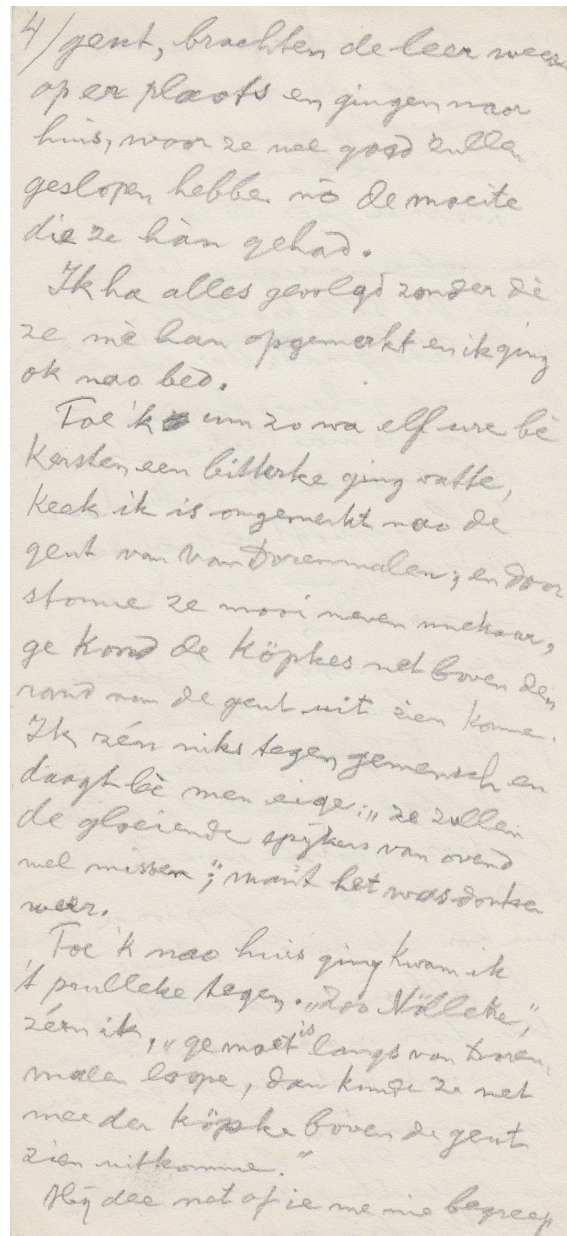 4/ gent, brachten de leer weer
op er plaots en gingen naor
huis, woor ze wel goed zulle
geslopen hebben nò de moeite
die ze hàn gehad.
Ik ha alles gevolgd zonder dè
ze mè han opgemerkt en ik ging
ok nao bed.
Toe 'k um zo wa elf ure bè
Kersten een bitterke ging vatte,
keek ik is ongemerkt nao de
gent van Van Dorenmalen; en door
stonne ze mooi neven mekaar,
ge kond de köpkes net boven den
rand van de gent uit zien komme.
Ik zén niks tegen gemensch en
daagt bè men eige: „ze zullen
de gloeiende spijkers van ovend
wel missen"; want het was donker
weer.
Toe 'k nao huis ging kwam ik
't prulleke tegen. „Zoo Nölleke",
zérn ik, „ge moet is langs van Doren-
malen loope, dan kunde ze net
mee der köpke boven de gent
zien uitkomme."
Hij dee net of ie me nie begreep